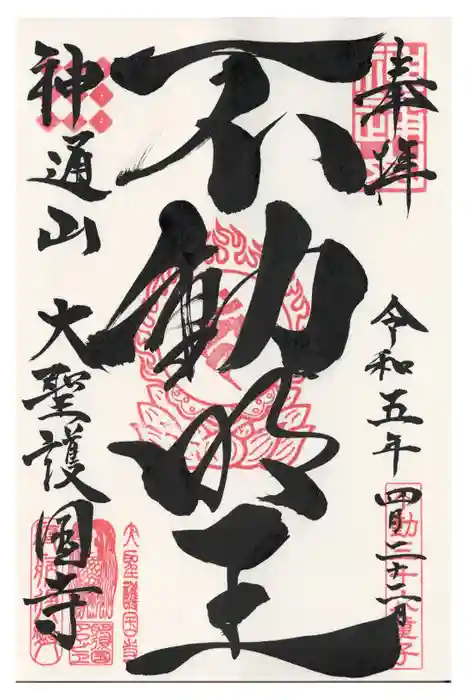 奉拝
令和五年四月二十二日
不動明王
神通山 大聖護国寺
大聖護国寺